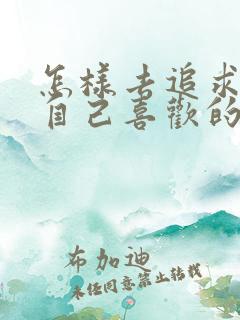 怎樣去追求
自己喜歡的
布加迪
未经同意禁止转载